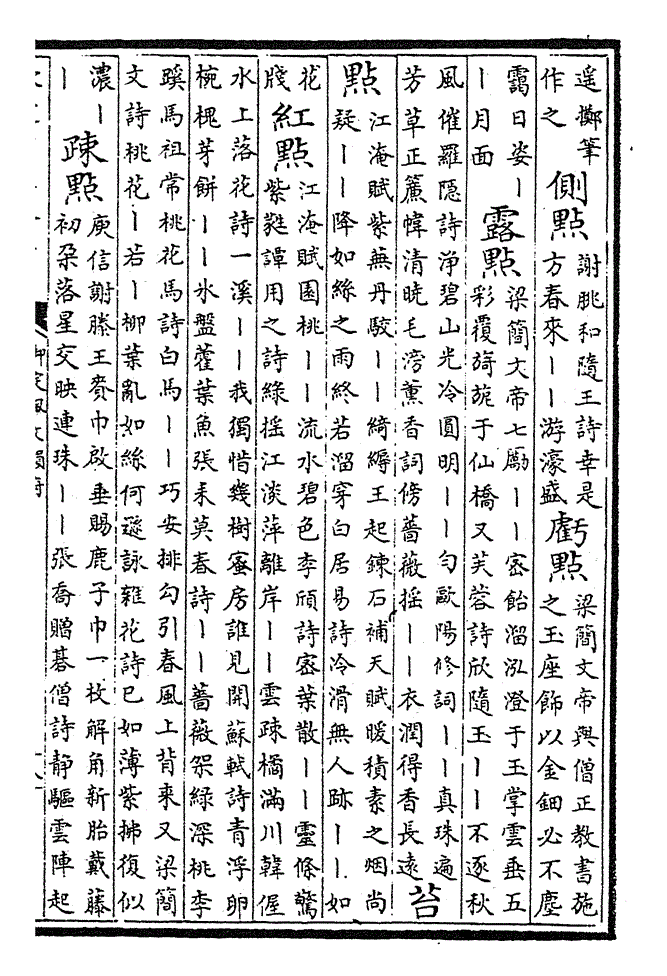 遥擲筆
作之
側點
謝朓和隨王詩幸是
方春來丨丨游濠盛
虧點
梁簡文帝與僧正教書施
之玉座飾以金鈿必不塵
靄日姿丨
丨月面
露點
梁簡文帝七勵丨丨密飴溜泓澄于玉掌雲垂五
彩覆旖旎于仙橋又芙蓉詩欣隨玉丨丨不逐秋
風催羅隱詩浄碧山光冷圓明丨丨匀歐陽修詞丨丨真珠遍
芳草正簾幃清曉毛滂薰香詞傍薔薇揺丨丨衣潤得香長遠
苔
點
江淹賦紫蕪丹駮丨丨綺縟王起鍊石補天賦暖積素之烟尚
疑丨丨降如絲之雨終若溜穿白居易詩冷滑無人跡丨丨如
花
牋
紅點
江淹賦園桃丨丨流水碧色李頎詩密葉散丨丨靈條驚
紫蕤譚用之詩緑揺江淡萍離岸丨丨雲疎橘滿川韓偓
水上落花詩一溪丨丨我獨惜幾樹蜜房誰見開蘇軾詩青浮卵
椀槐芽餅丨丨氷盤藿葉魚張耒莫春詩丨丨薔薇架緑深桃李
蹊馬祖常桃花馬詩白馬丨丨巧安排勾引春風上背來又梁簡
文詩桃花丨若丨柳葉亂如絲何遜詠雜花詩已如薄紫拂復似
濃丨
丨
疎點
庾信謝滕王賚巾啟垂賜鹿子巾一枚解角新胎戴藤
初朶落星交映連珠丨丨張喬贈碁僧詩静驅雲陣起